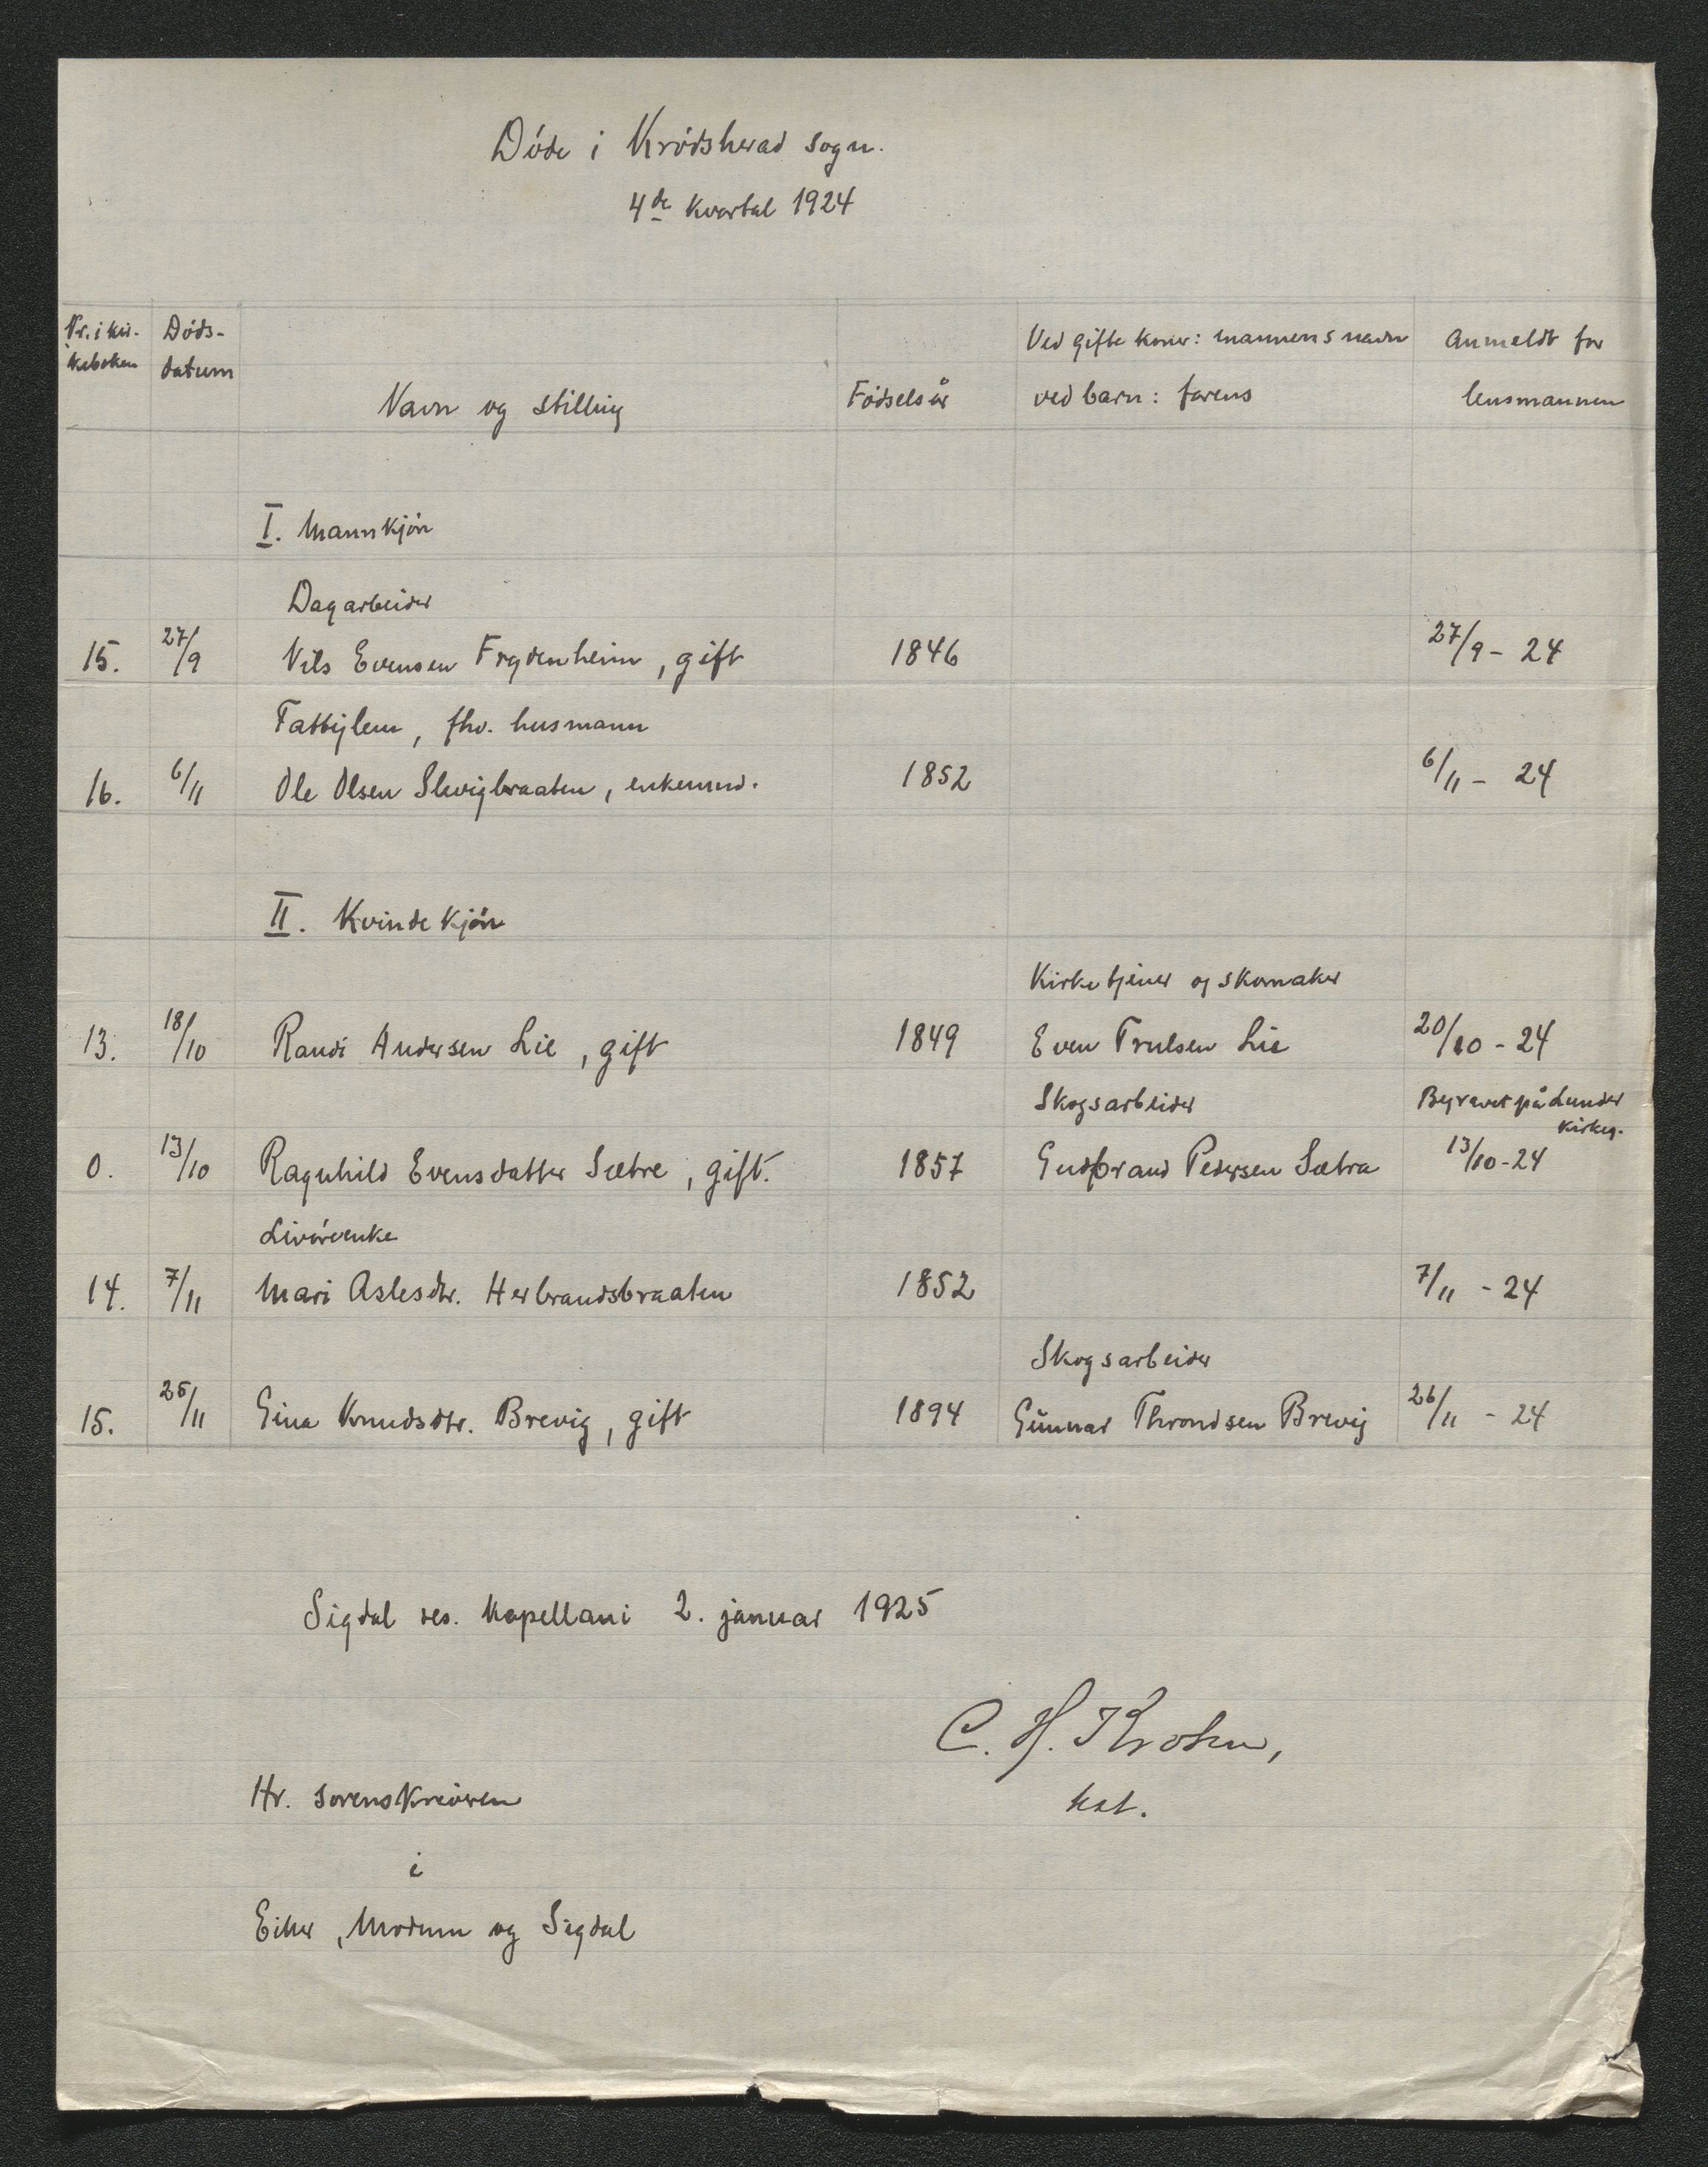 Døde i Krødsherad sogn.
4de kvartal 1924
Nr. i kir-
keboken
Døds-
datum
Navn og stilling
Fødselsår
Ved gifte koner: mannens navn
ved barn: farens
Anmeldt for
lensmannen
I. Mannkjøn
Dagarbeider
15. 27/9 Nils Evensen Frydenheim, gift 1846 27/9 - 24
Fattiglem, fhv. husmann
16. 6/11 Ole Olsen Slevigbraaten, enkemnd. 1852 6/11 - 24
II. Kvindekjøn
Kirketjener og skomaker
13. 18/10 Randi Andersen Lie, gift 1849 Even Trulsen Lie 20/10 - 24
Skogsarbeider Begravet på Lunder
kirkeg.
0. 13/10 Ragnhild Evensdatter Sætre, gift. 1857 Gudbrand Pedersen Sætra 13/10 - 24
Livørenke
14. 7/11 Mari Aslesdtr. Herbrandsbraaten 1852 7/11 - 24
Skogsarbeider
15. 25/11 Gina Knudsdtr. Brevig, gift 1894 Gunnar Throndsen Brevig 26/11 - 24
Sigdal res. kapellani 2. januar 1925
C. H. Krohn,
kst.
Hr. sorenskriveren
i
Eiker, Modum og Sigdal